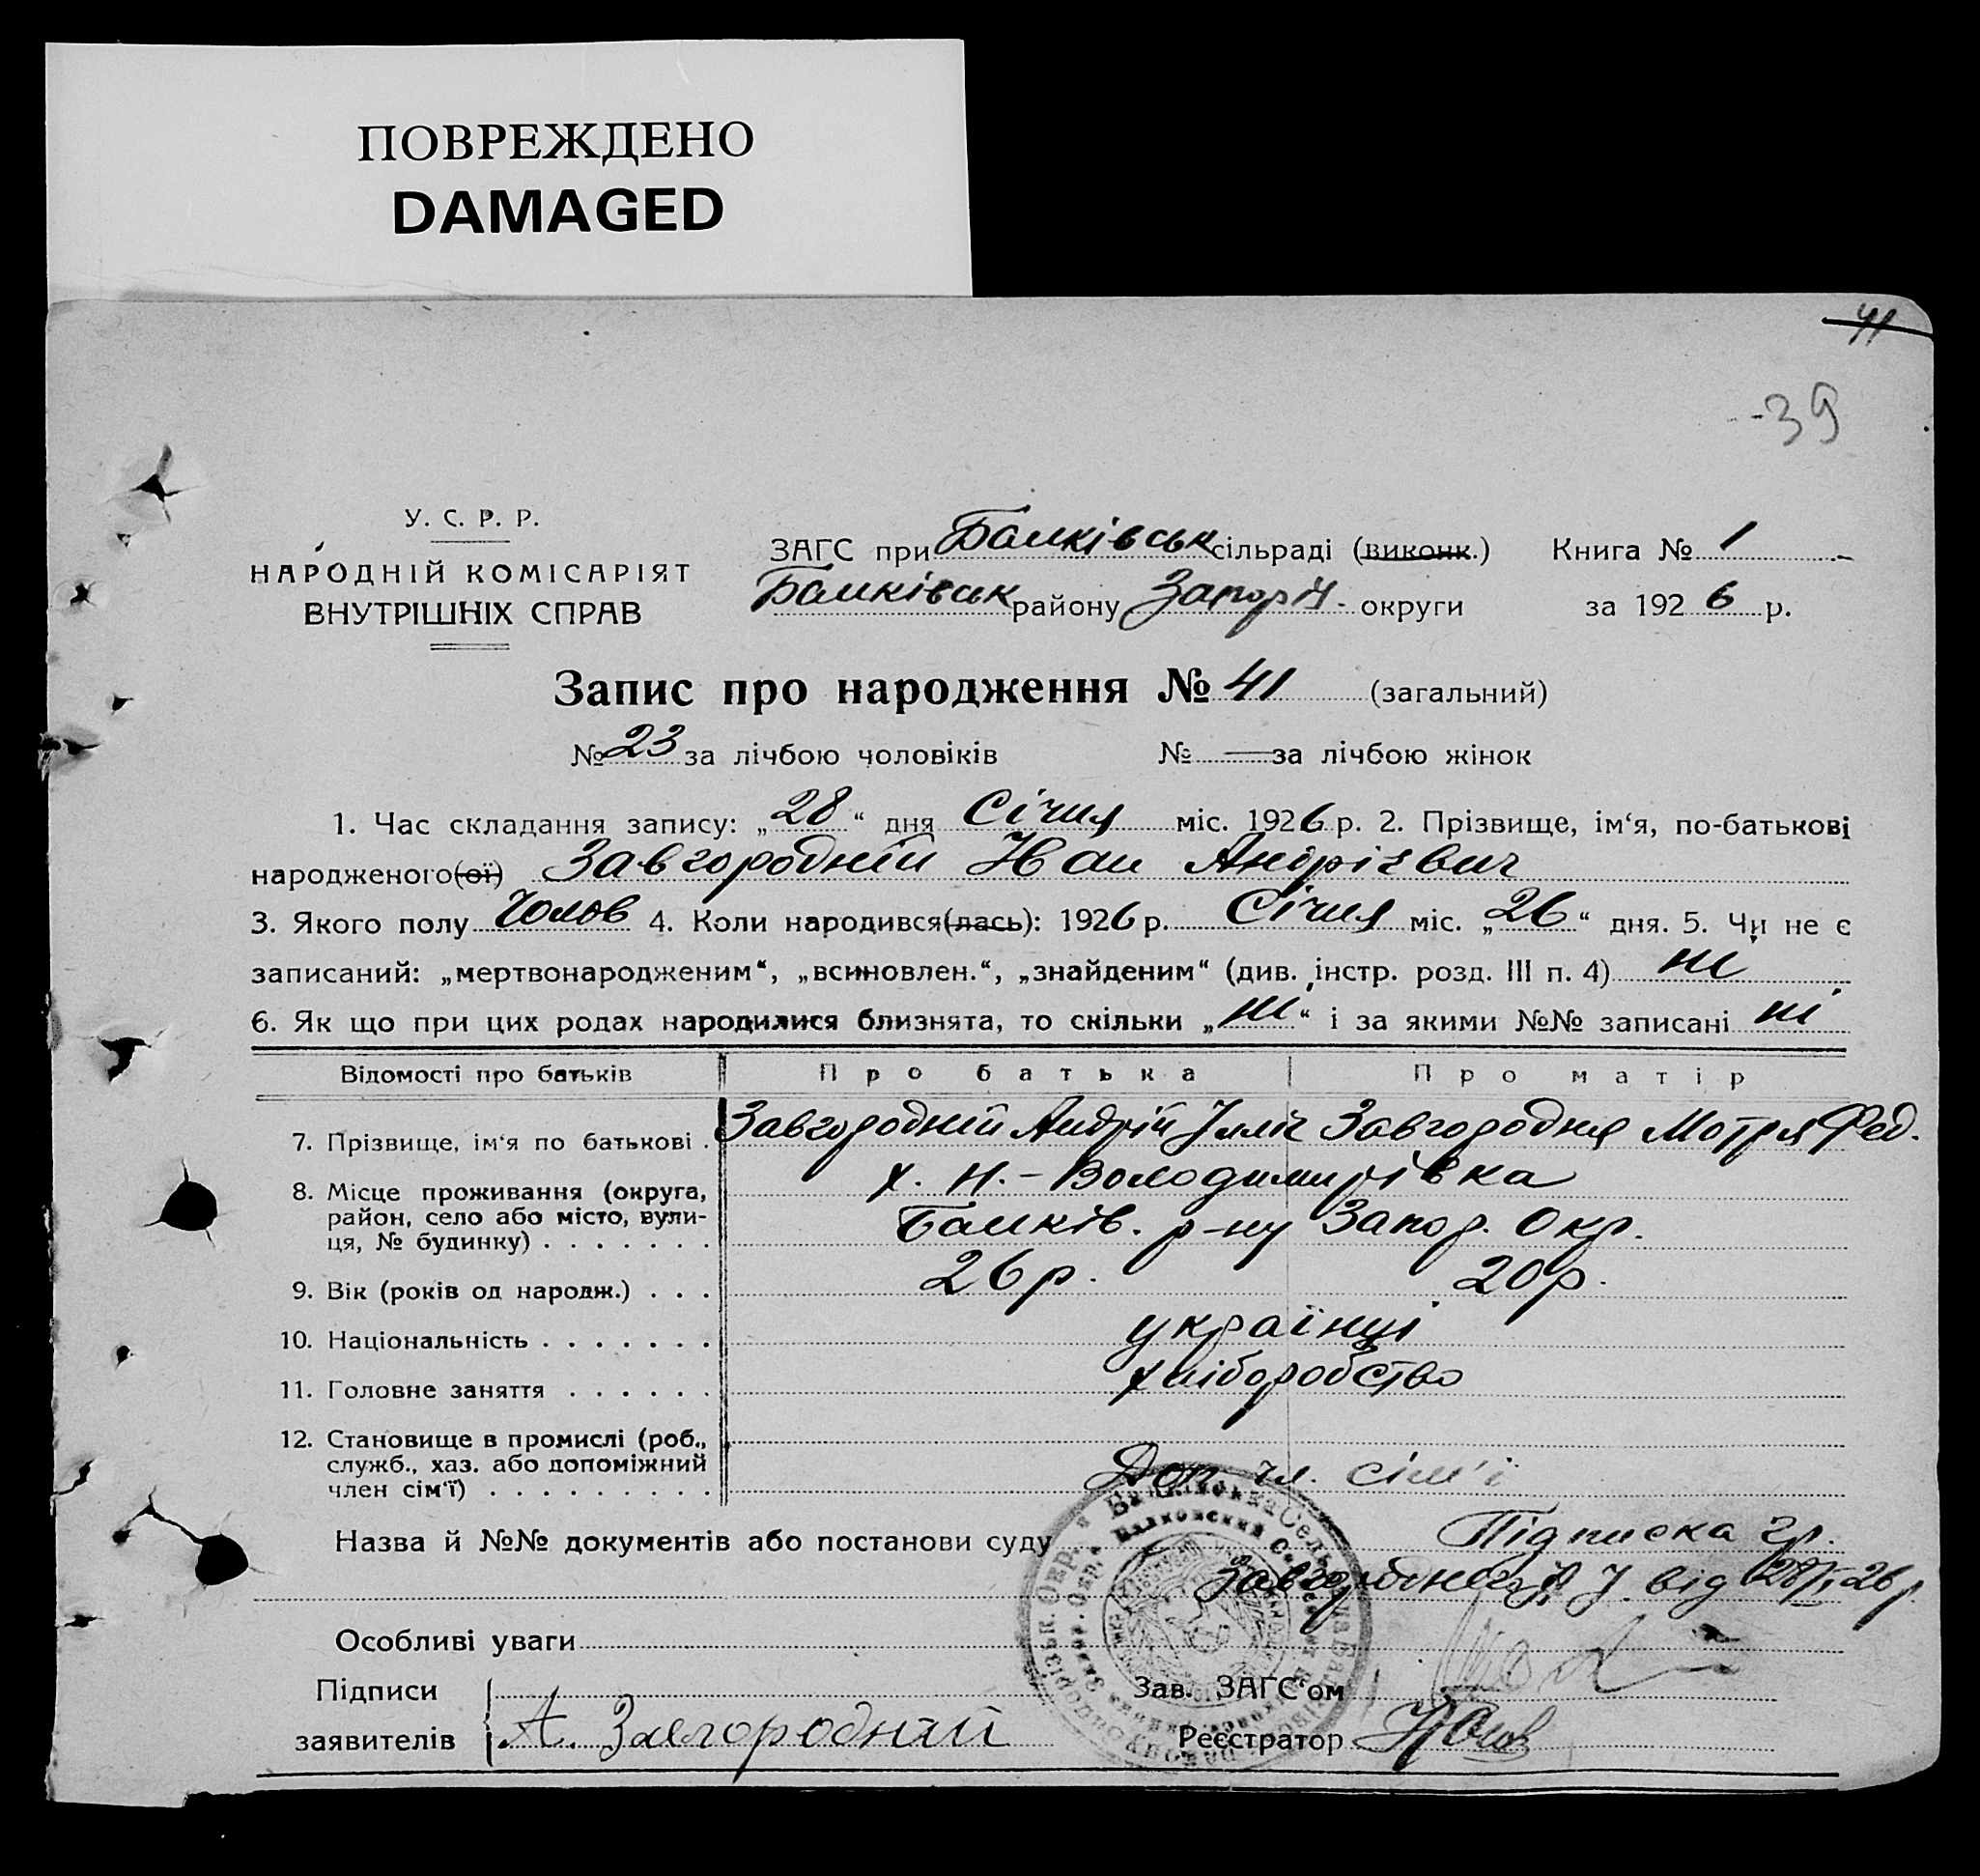 ПОВРЕЖДЕНО
DAMAGED
41
39
У. С. Р. Р.
НАРОДНІЙ КОМІСАРІЯТ
ВНУТРІШНІХ СПРАВ
ЗАГС при Балківськ сільраді (виконк.) Книга № 1
Балківськ району Запоріз. округи за 1926 р.
Запис про народження № 41 (загальний)
№ 23 за лічбою чоловіків № — за лічбою жінок
1. Час складання запису: „28“ дня Січня міс. 1926 р. 2. Прізвище, ім‘я, по-батькові
народженого(ої) Завгородній Иван Андрієвич
3. Якого полу Чолов 4. Коли народився(лась): 1926 р. Січня міс. „26“ дня. 5. Чи не є
записаний: „мертвонародженим“, „всиновлен.“, „знайденим“ (див. інстр. розд. III п. 4) ні
6. Як що при цих родах народилися близнята, то скільки „ні“ і за якими №№ записані ні
Відомості про батьків Про батька Про матір
7. Прізвище, ім‘я по батькові . Завгородній Андрій Ілліч Завгородня Мотря Фед.
8. Місце проживання (округа, х. Н.-Володимирівка
район, село або місто, вули-
ця, № будинку) . . . . . . . Балків. р-ну Запор. Окр.
9. Вік (років од народж.) . . . 26 р. 20 р.
10. Національність . . . . . . . українці
11. Головне заняття . . . . . . хліборобство
12. Становище в промислі (роб.,
служб., хаз. або допоміжний
член сім‘ї) . . . . . . . . . Доп. чл. сім'ї
Назва й №№ документів або постанови суду Підписка гр.
Завгороднего А. І. від 28/I-26 р.
Особливі уваги
Підписи Зав. ЗАГС‘ом
заявителів А. Завгородний Реєстратор